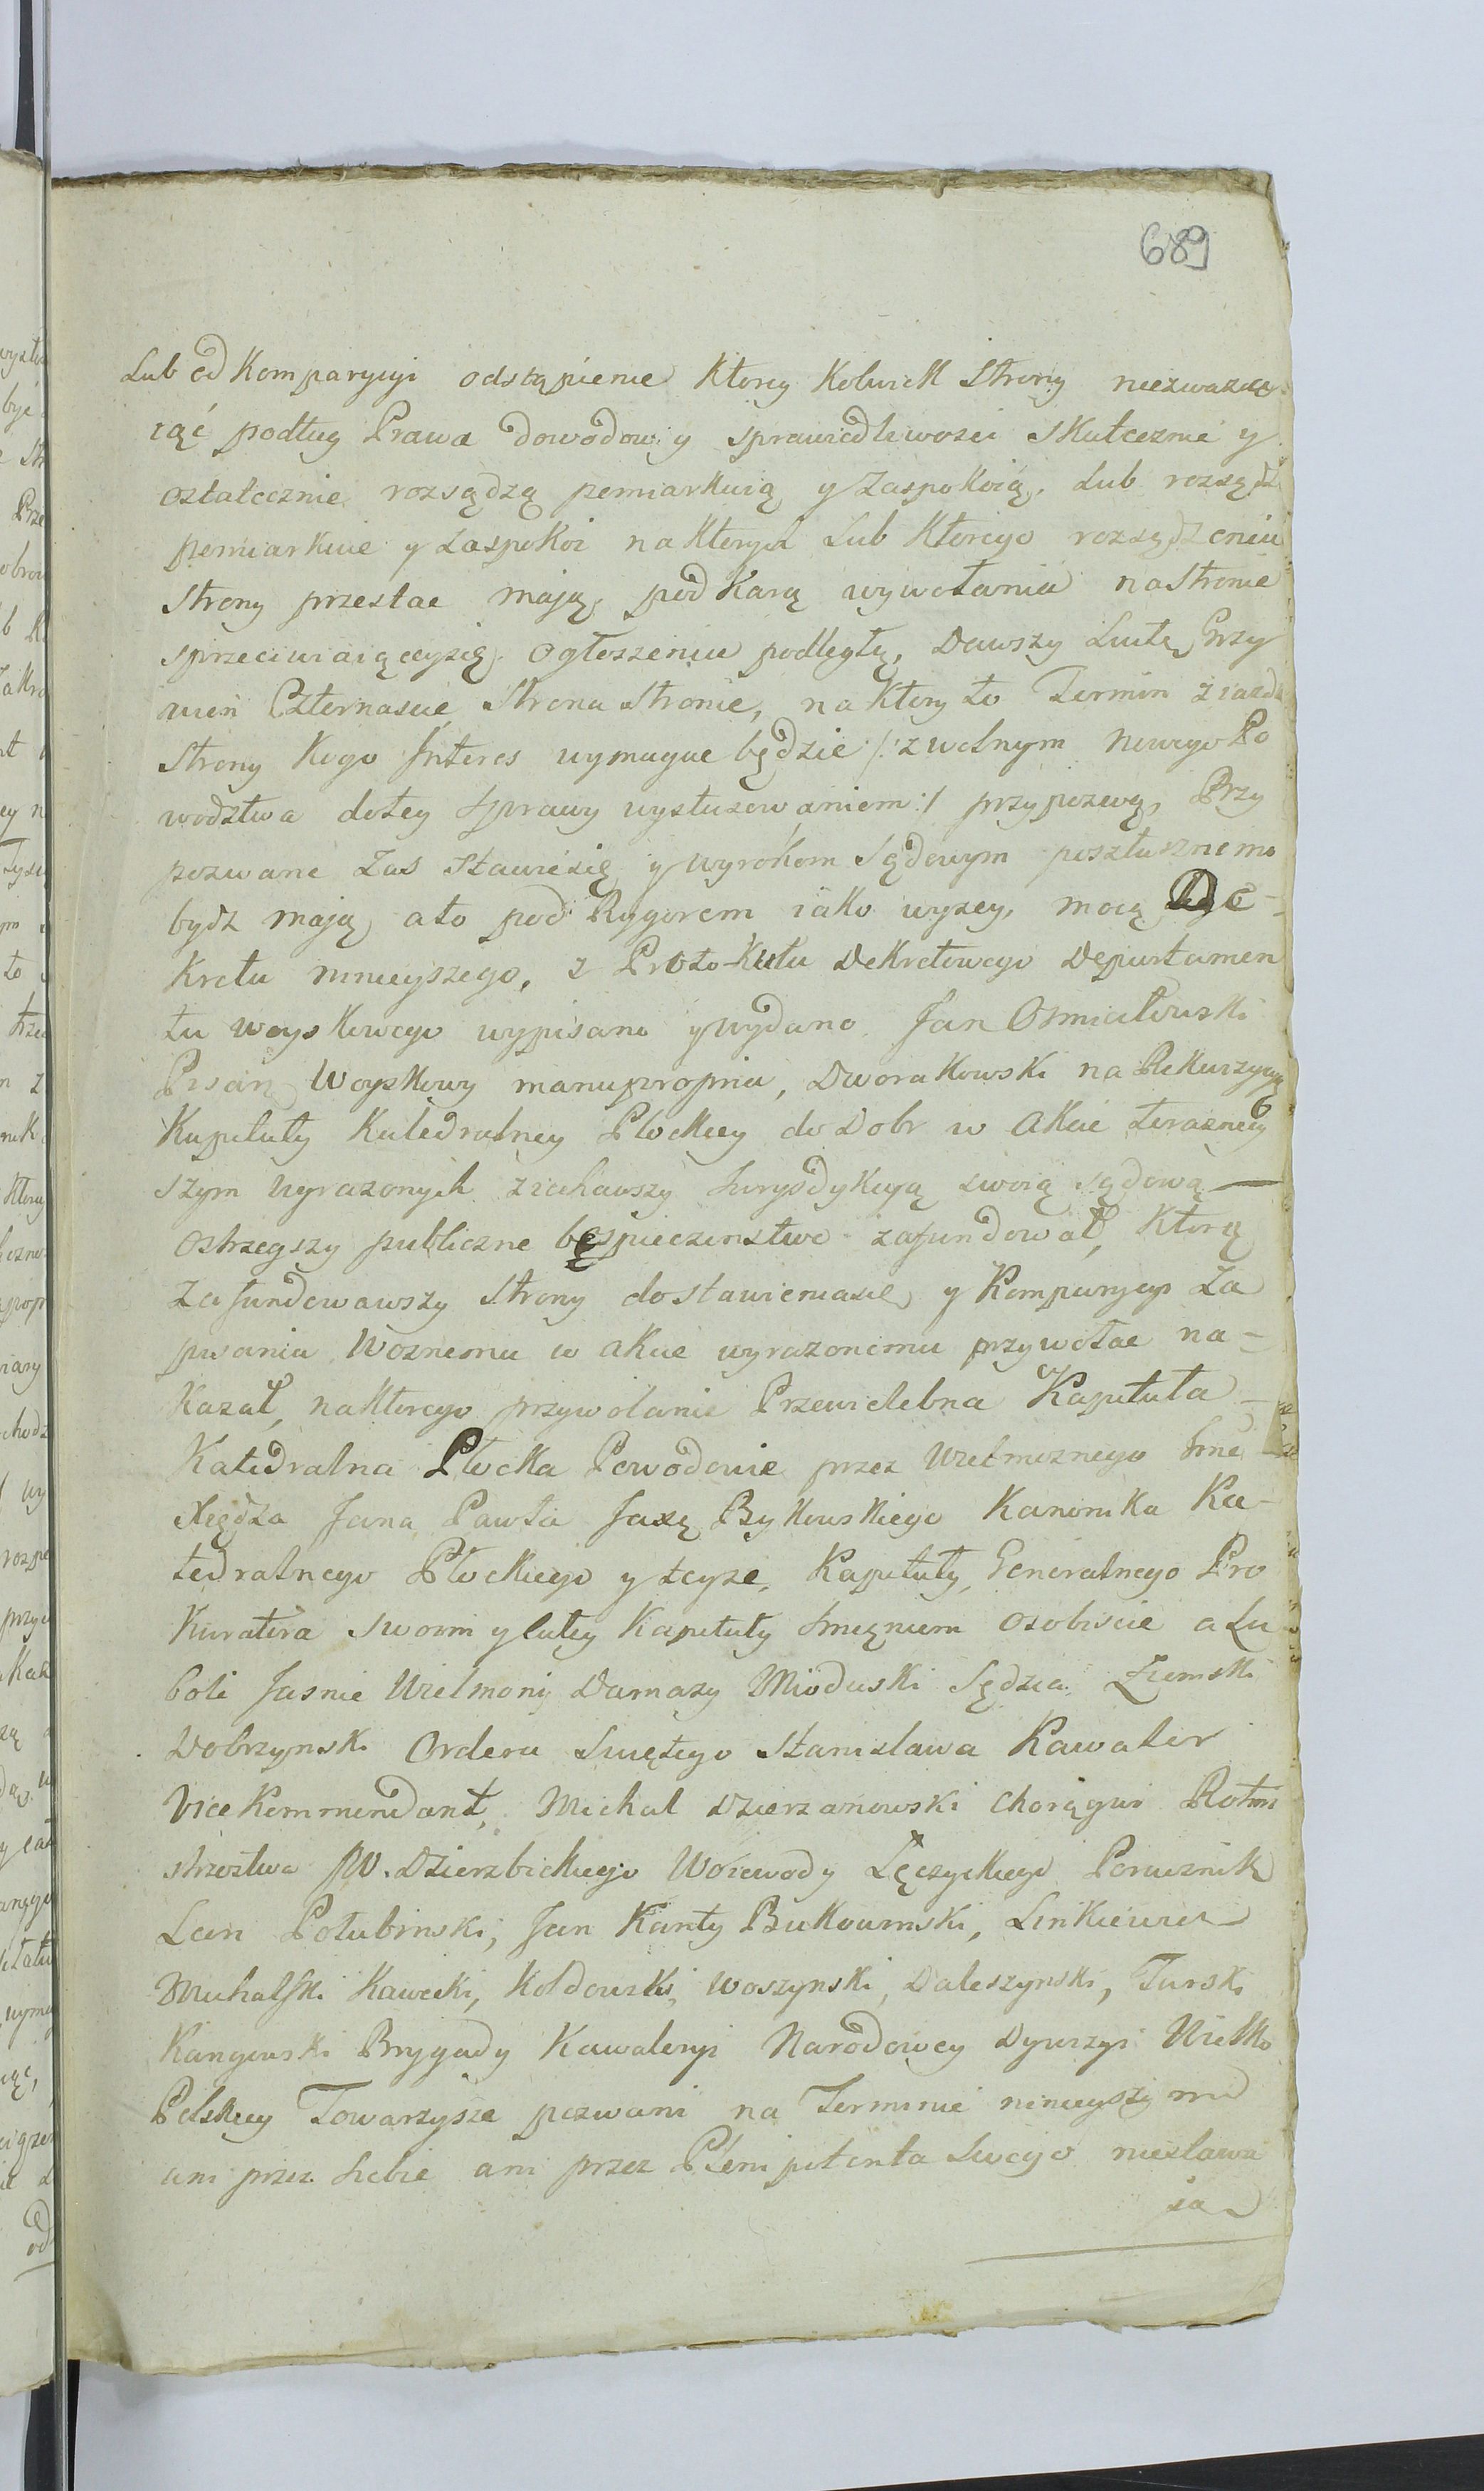 689
Lub od Komparycyi odstąpienie Ktorey Kolwiek Strony niezwaza
iąć podług Prawa dowodow y sprawiedliwosci skutecznie y
ostatecznie rozsądzą pomiarkuią y Zaspokoią, Lub rozsądzi
pomiarkuie y Zaspokoi na Ktorych Lub Ktorego rozsądzeniu
Strony przestac mają, pod Karą wywołania na Stronie
sprzeciwiaiąceysię Ogłoszeniu podległą, Dawszy Lutą Grzy
wien Czternascie Strona Stronie, na Ktory to Termin ziazdu
Strony Kogo Interes wymagac będzie /: z wolnym nowego Po
wodztwa do tey Sprawy wystusowaniem :/ przypozwą, Przy
pozwane Zas Stawicsię y wyrokom Sądowym posztusznemo
bydz mają, a to pod Rygorem iako wyzey, mocą De-
Kretu ninieyszego, z Protokułu Dekretowego Departamen
tu Woyskowego wypisano y wydano Jan Osmiałowski
Pisarz Woyskowy manu propria, Dworakowski na Rekwizycyą
Kapituły Katedralney Płockiey do Dobr w Akcie teraźniey
szym wyrazonych ziechawszy Jurysdykcyą swoią sądową —
Ostrzegszy publiczne bespieczenstwo zafundował, Ktorą
Zafundowawszy Strony do stawieniasię y Komparycyi Za
pwania Woznemu w akcie wyrazonemu przywołac na-
Kazał, na Ktorego przywołanie Przewielebna Kapituła
Katedralna Płocka Powodowie przez Wielmoznego Jmć
Xiędza Jana Pawła Jaxę Bykowskiego Kanonika Ka-
tedralnego Płockiego y teyze Kapituły Generalnego Pro
Kuratora Swoim y całey Kapituły Jmieniem Osobiscie a Lu
boli Jasnie Wielmozni Damazy Mioduski Sędzia Ziemski
Dobrzynski Orderu Swiętego Stanisława Kawaler
Vice Kommendant, Michał Dzierzanowski Chorągwi Rotmi
strzostwa JW. Dzierzbickiego Woiewody Łęczyckiego Porucznik
Leon Połubinski, Jan Kanty Bukowinski, Linkiewicz
Michalski Kawecki, Kołdowski, Woszynski, Daleszynski, Turski
Brygady Kawaleryi Narodowey Dywizyi Wielko
Polskiey Towarzysze pozwani na Terminie ninieyszym
ani przez Siebie ani przez Plenipotenta Swego niestawa
ią